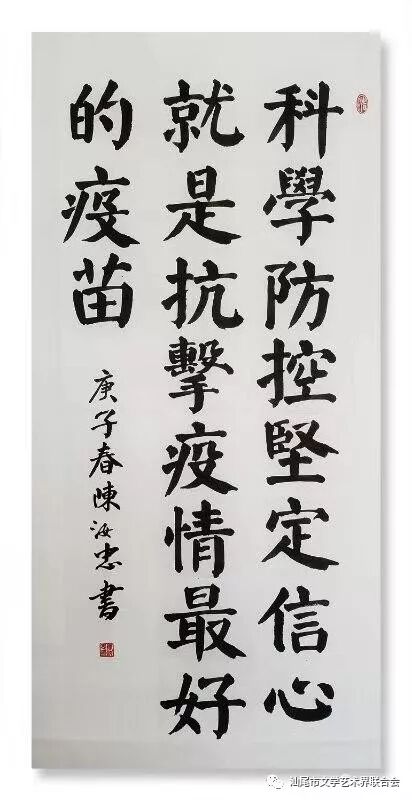 科學防控堅定信心
就是抗擊疫情最好
的疫苗
庚子春陳汝忠書
汕尾市文学艺术界联合会